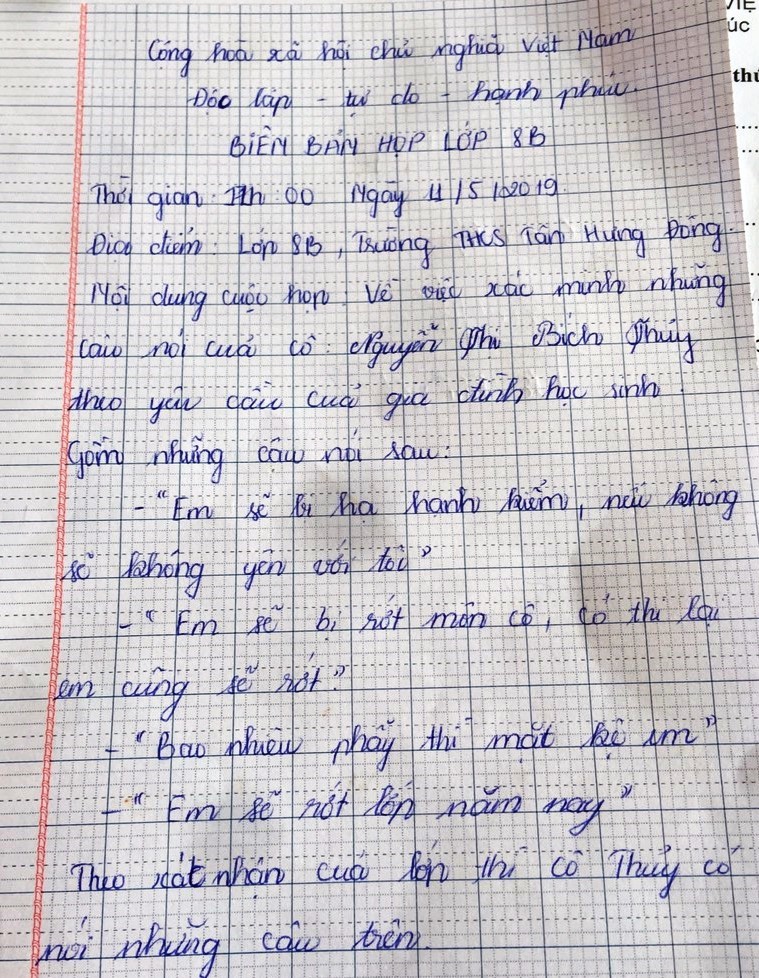 Cộng hoà xã hội chủ nghĩa Việt Nam
Độc lập - tự do - hạnh phúc.
BIÊN BẢN HỌP LỚP 8B
Thời gian: 11h 00 Ngày 11/5/2019
Địa điểm: Lớp 8B, Trường THCS Tân Hưng Đông.
Nội dung cuộc họp: Về việc xác minh những
câu nói của cô: Nguyễn Thị Bích Thủy
theo yêu cầu của gia đình học sinh.
Gồm những câu nói sau:
- "Em sẽ bị hạ hạnh kiểm, nếu không
sẽ không yên với tôi"
- "Em sẽ bị rớt môn cô, có thi lại
em cũng sẽ rớt"
- "Bao nhiêu phẩy thì mặt kệ em"
- "Em sẽ rớt lớp năm nay"
Theo xát nhận của lớp thì cô Thủy có
nói những câu trên.
VIỆ
úc
thứ